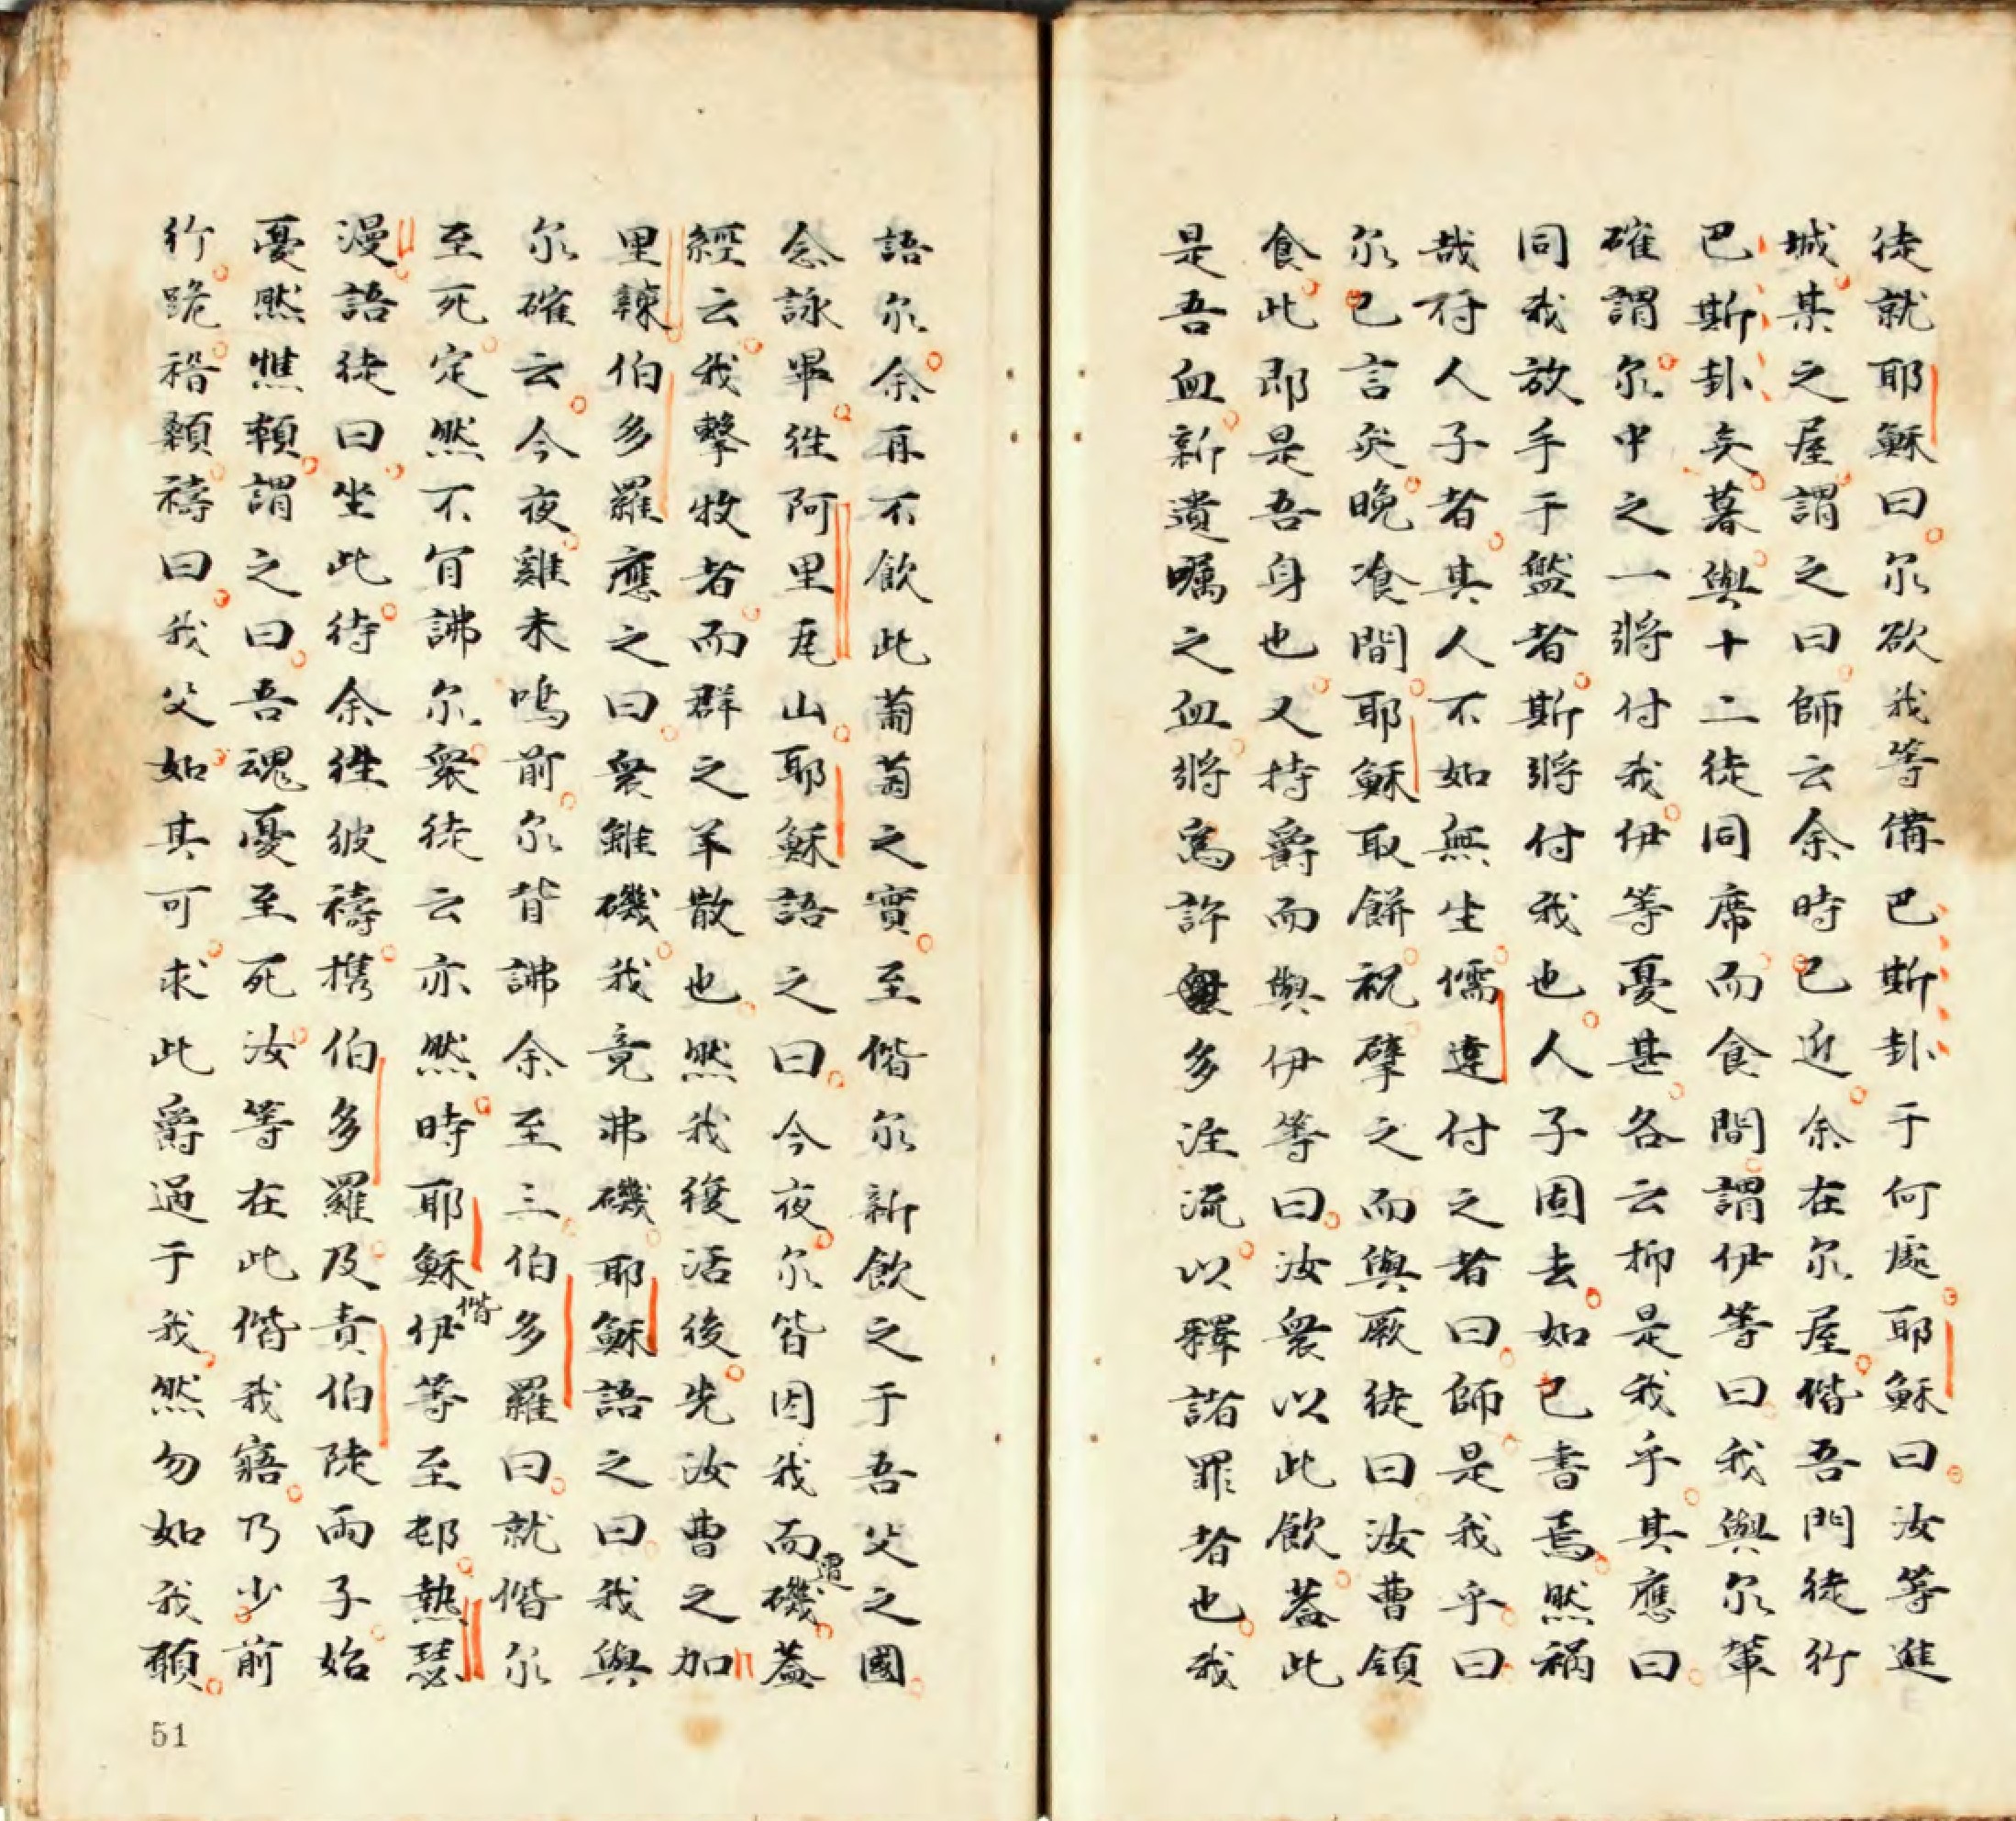 徒就耶穌曰尔欲我等備巴斯卦于何處耶穌曰汝等進
城某之屋謂之曰師云余時已近余在尔屋偕吾門徒行
巴斯卦矣暮與十二徒同席而食間謂伊等曰我與尔輩
確謂尔中之一將付我伊等憂甚各云抑是我乎其應曰
同我放手于盤者斯將付我也人子固去如已書焉然禍
哉付人子者其人不如無生儒達付之者曰師是我乎曰
尔已言矣晚飡間耶穌取餅祝擘之而與厥徒曰汝曹領
食此即是吾身也又持爵而與伊等曰汝衆以此飲蓋此
是吾血新遺嘱之血將為許多淫流以釋諸罪者也我
語尔余再不飲此葡萄之實至偕尔新飲之于吾父之國
念詠畢徃阿里瓦山耶穌語之曰今夜尔皆因我而遭磯蓋
經云我擊牧者而群之羊散也然我復活後先汝曹之加
里辣伯多羅應之曰衆雖磯我竟弗磯耶穌語之曰我與
尔確云今夜雞未鳴前尔背諌余至三伯多羅曰就偕尔
至死定然不肯諌尔衆徒云亦然時耶穌偕伊等至邨熱瑟
漫語徒曰坐此待余徃彼禱携伯多羅及責伯陡兩子始
憂然憔頼謂之曰吾魂憂至死汝等在此偕我寤乃少前
行跪稽顙禱曰我父如其可求此爵過于我然勿如我願
51